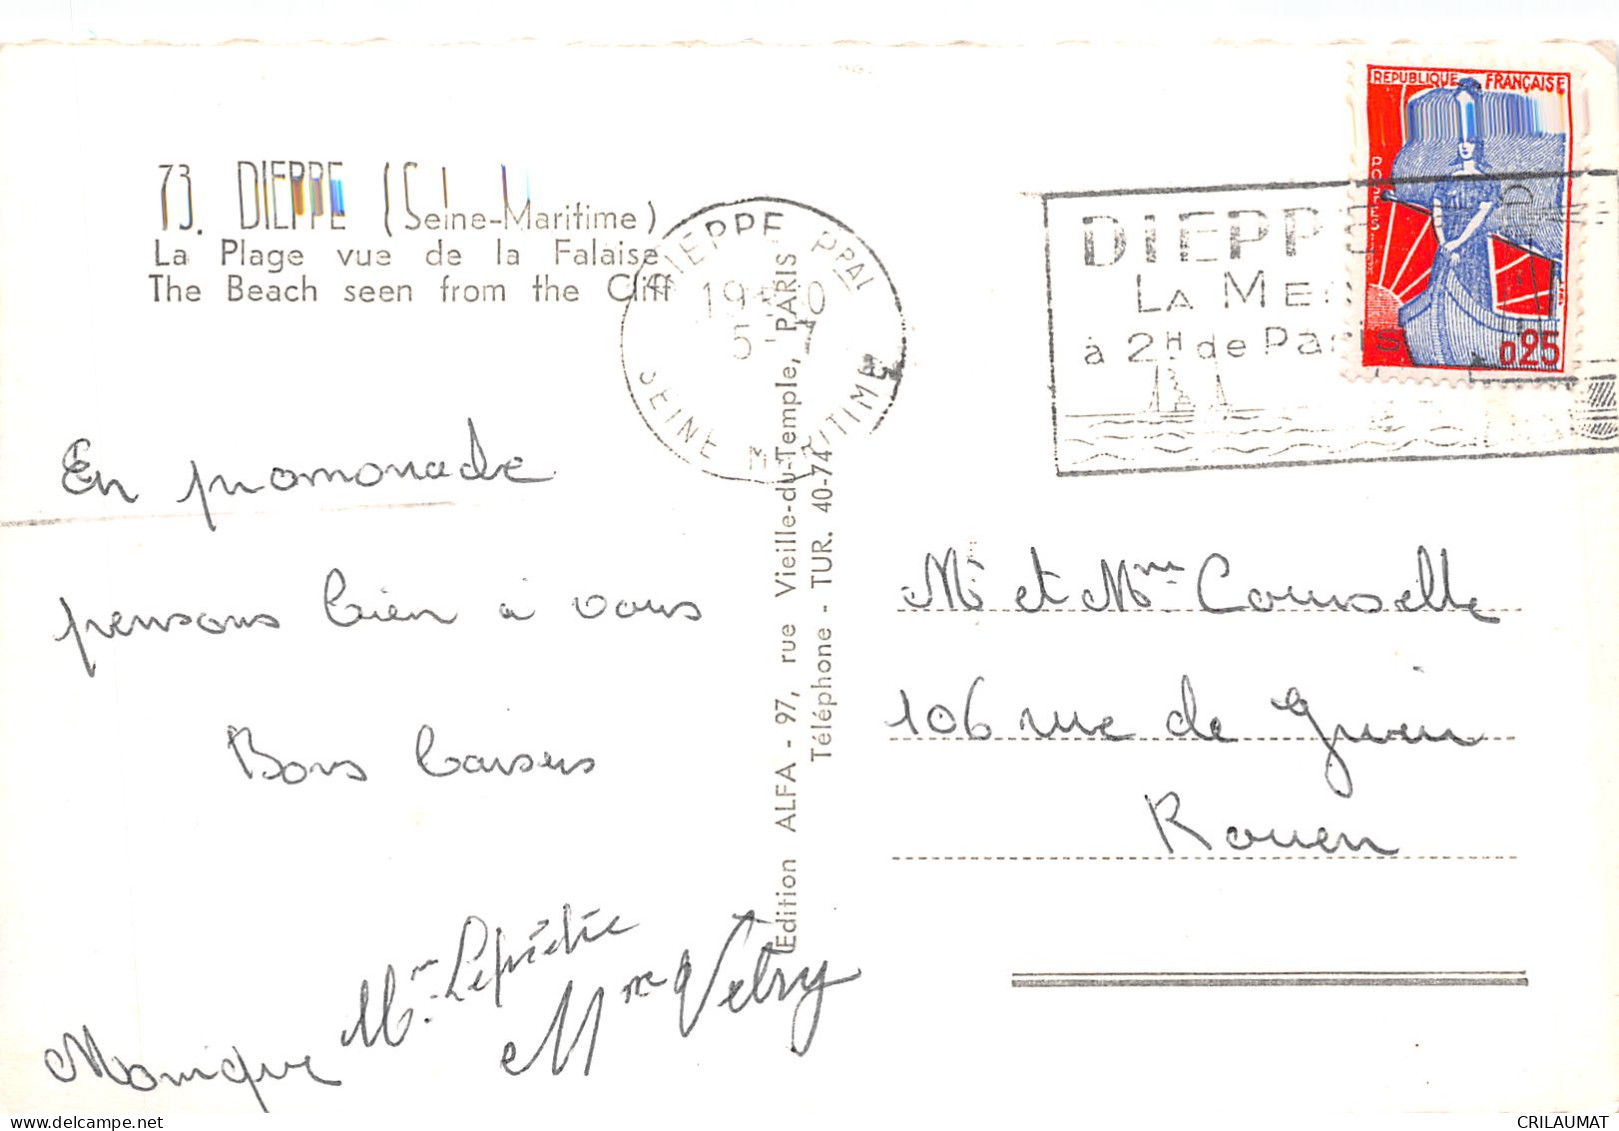 73. DIEPPE (Seine-Maritime)
La Plage vue de la Falaise
The Beach seen from the Cliff
DIEPPE PPAL
5-7
SEINE MARITIME
DIEPPE
LA MER
à 2H de Paris
REPUBLIQUE FRANÇAISE
POSTES
0,25
En promonade
pensons bien à vous
Bons baisers
Mme Lepiètre
Mme Vetry
Monique
Edition ALFA - 97, rue Vieille-du-Temple, PARIS
Téléphone - TUR. 40-74
Mr et Mme Courselle
106 rue de
Rouen
CRILAUMAT